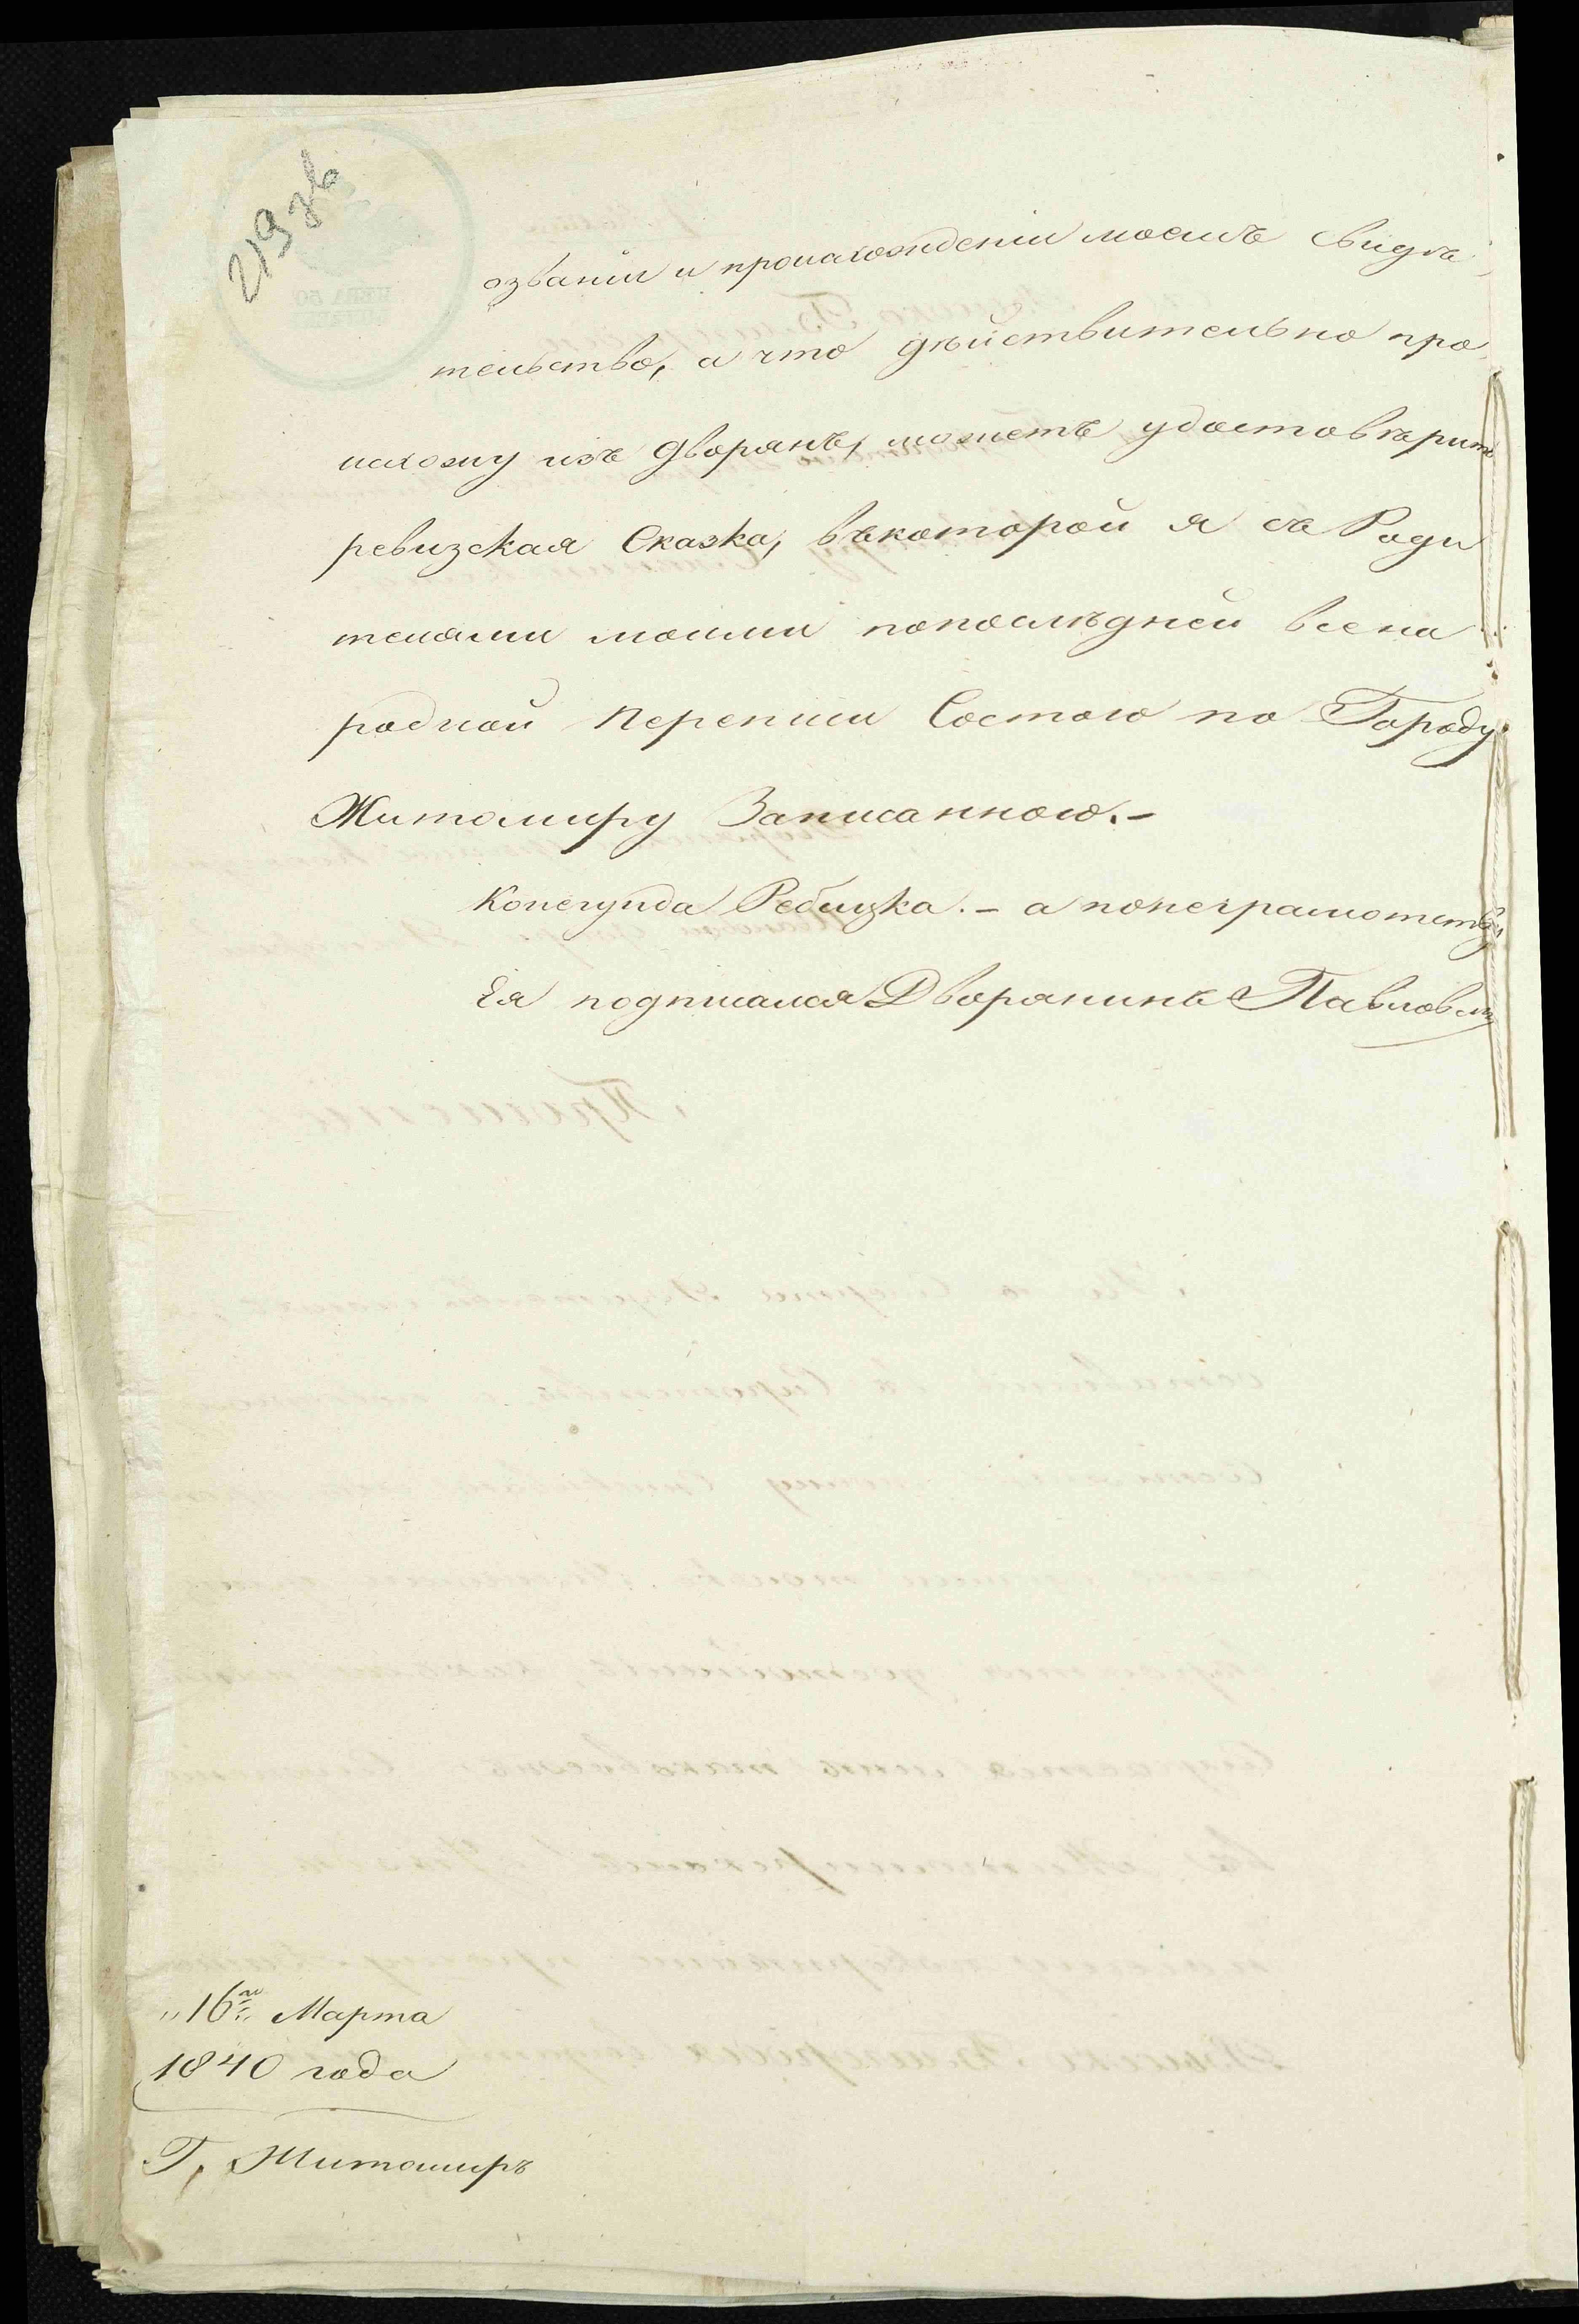 219 зв
озваніи и происхожденіи моемъ свидѣ-
тельство, а что дѣйствительно про-
исхожу изъ дворянъ, можетъ удостовѣрить
ревизская Сказка, въкоторой я съ Роди
телями моими попослѣдней всена
родной переписи Состою по Городу
Житомиру Записанною.-
Конегунда Ребицка. - а понеграмотству
Ея подписался Дворянинъ Павловскій
"16го" Марта
1840 года
Г. Житомиръ